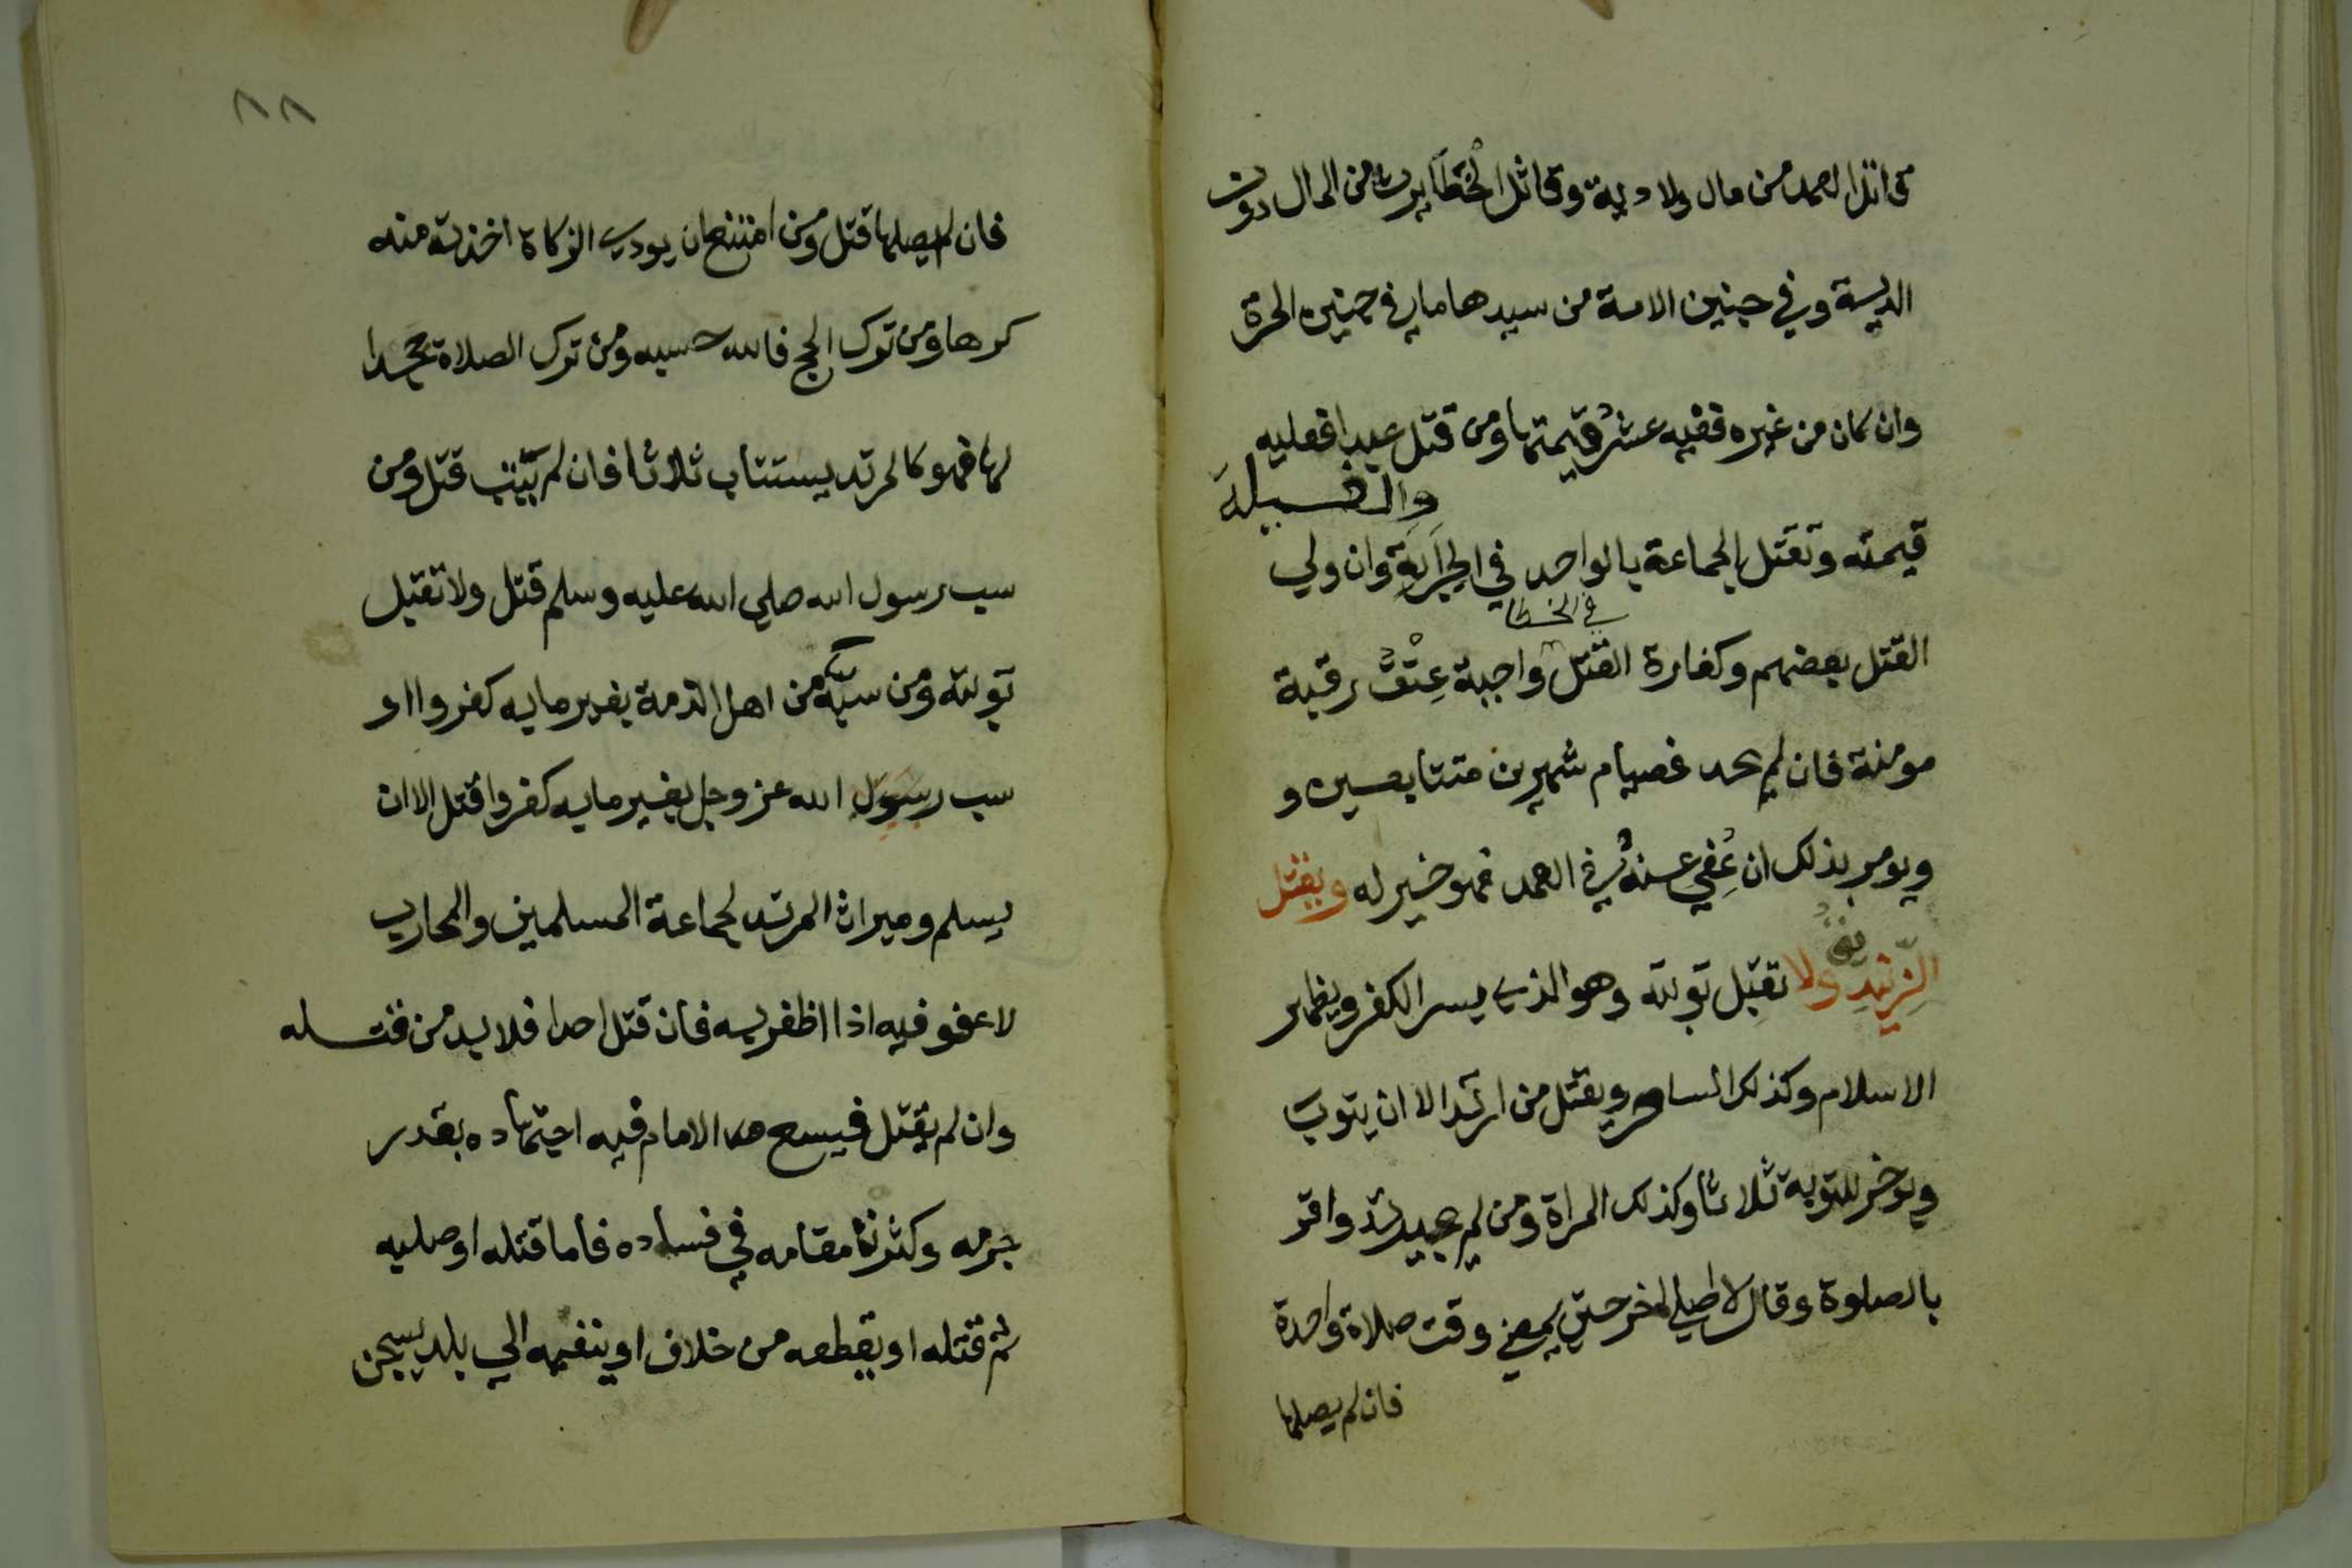 قاتل العمد من مال ولا دية وقاتل الخَطَأ يرث من المال دون
الدية وفي جنين الامة من سيدها ما في جنين الحرة
وان كان من غيره ففيه عشر قيمتها ومن قتل عبدا فعليه
قيمته وتقتل الجماعة بالواحد في الحِرَابَةِ والغيلة وان ولي
القتل بعضهم وكفارة القتل في الخطا واجبة عِتْقُ رقبة
مومنة فان لم يجد فصيام شهرين متتابعين و
ويومر بذلك ان عُفِي عنهُ في العمد فهو خير له ويقتل
الزِّنديق ولا تقبل توبته وهو الذي يسر الكفر ويظهر
الاسلام وكذلك الساحر ويقتل من ارتد الا ان يتوب
ويوخر للتوبة ثلاثا وكذلك المراة ومن لم يرتد واقر
بالصلوة وقال لا اصلي اخر حتي يمضي وقت صلاة واحدة
فان لم يصلها
٨٨
فان لم يصلها قتل ومن امتنع ان يودي الزكاة اخذت منه
كرها ومن ترك الحج فالله حسبه ومن ترك الصلاة جحدا
لها فهو كالمرتد يستتاب ثلاثا فان لم يتب قتل ومن
سب رسول الله صلي الله عليه وسلم قتل ولا تقبل
توبته ومن سبَّه من اهل الذمة بغير ما به كفروا او
سب رسول الله عز وجل بغير ما به كفروا قتل الا ان
يسلم وميراث المرتد لجماعة المسلمين والمحارب
لا عفو فيه اذا اظفر به فان قتل احدا فلا بد من قتله
وان لم يقتل فيسع الامام فيه اجتهاده بقدر
جرمه وكثرة مقامه في فساده فاما قتله او صلبه
ثم قتله او يقطعه من خلاف او ينفيه الي بلد يسجن